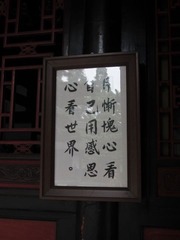 用慚愧心看
自己用感恩
心看世界。